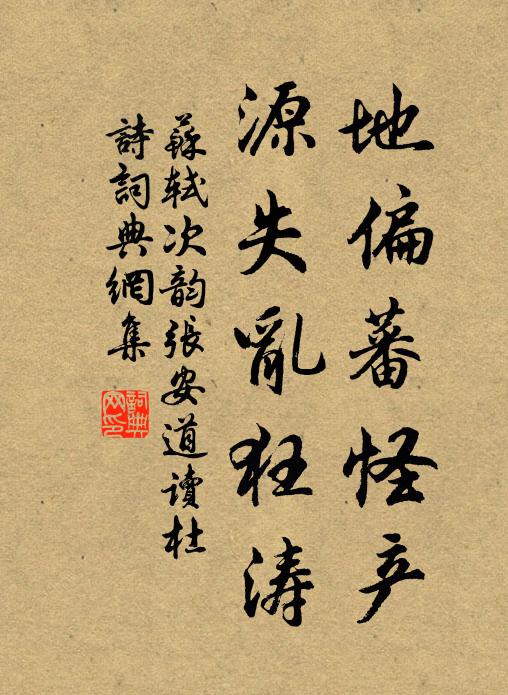 地偏蕃怪产
源失亂狂涛
蘇軾次韵張安道讀杜
詩詞典網集
詞典网印